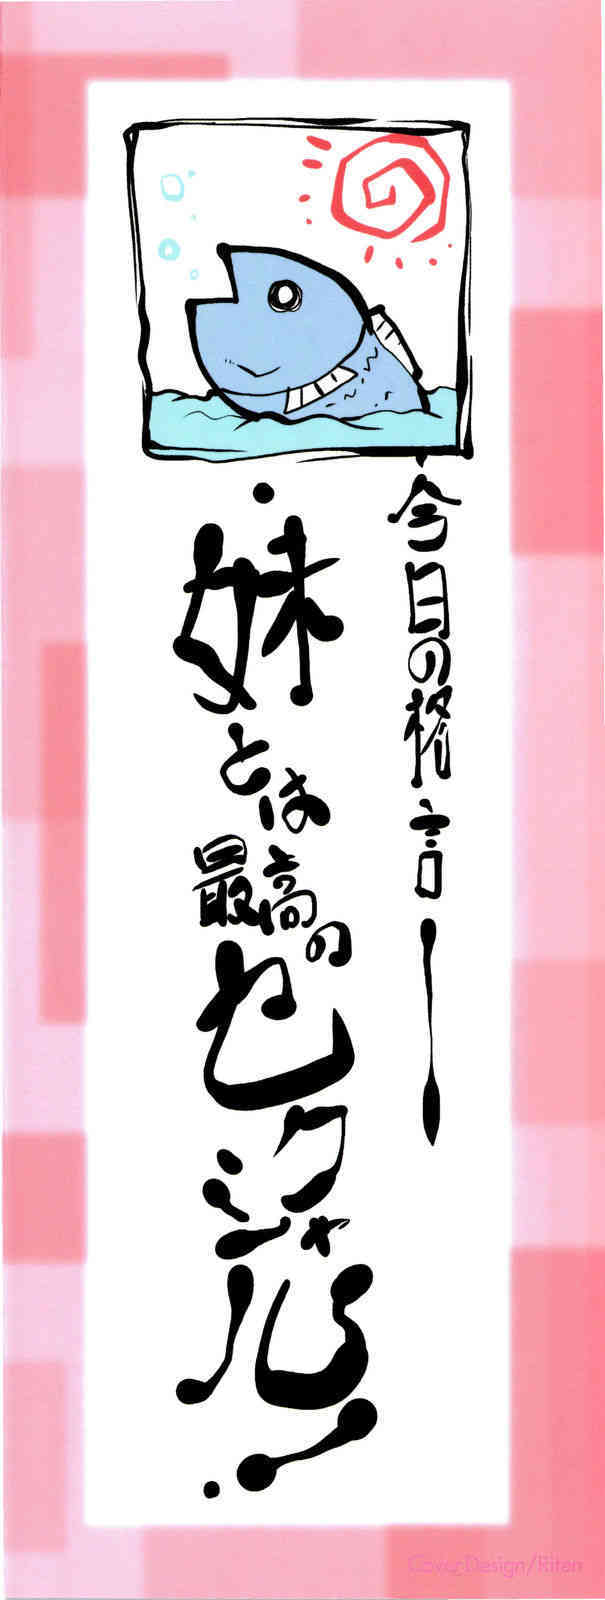 今日の格言―
・妹とは最高のセクシャル!
Cover Design/Riten